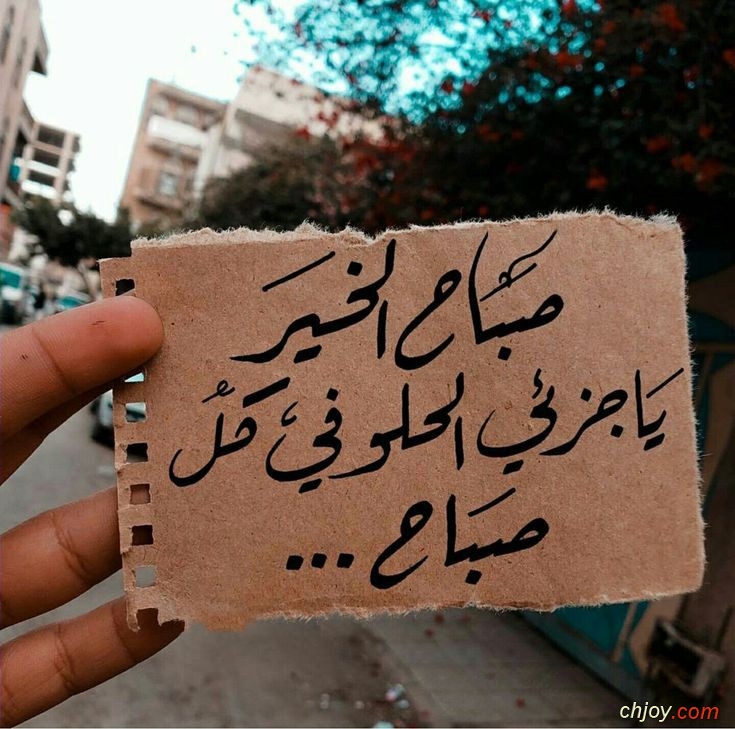 صَبَاح الخَير
يَا جزئي الحلو في كلُ
صبَاح ...
chjoy.com